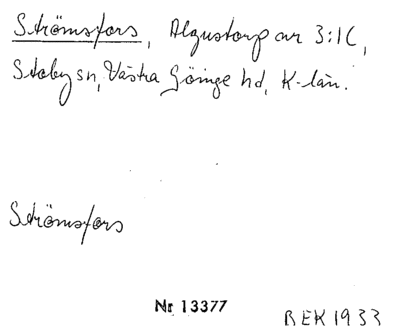 Strömsfors, Algustorp nr 3:16,
Stoby sn, Västra Göinge hd, K-län.
Strömsfors
Nr 13377
BEK 1933